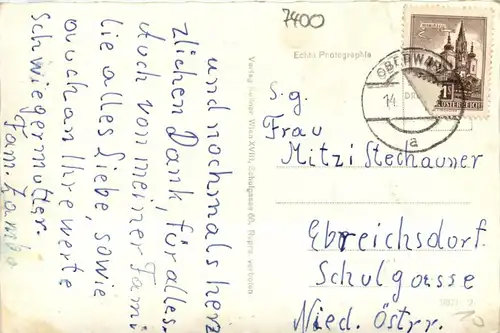 und nochmals herz
zlichen Dank, für alles.
Auch von meiner Fami
lie alles Liebe, sowie
auch an Ihre werte
Schwiegermutter.
Fam. Zambo
7400
Echte Photographie
Verlag
Wien XVIII, Schulgasse
Repro verboten
OBERWA
14.
a
1
ÖSTERREICH
S.g.
Frau
Mitzi Stechauner
Ebreichsdorf.
Schulgasse
Nied. Östrr.
10